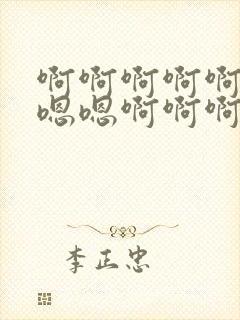 啊啊啊啊啊
嗯嗯啊啊啊
李正忠